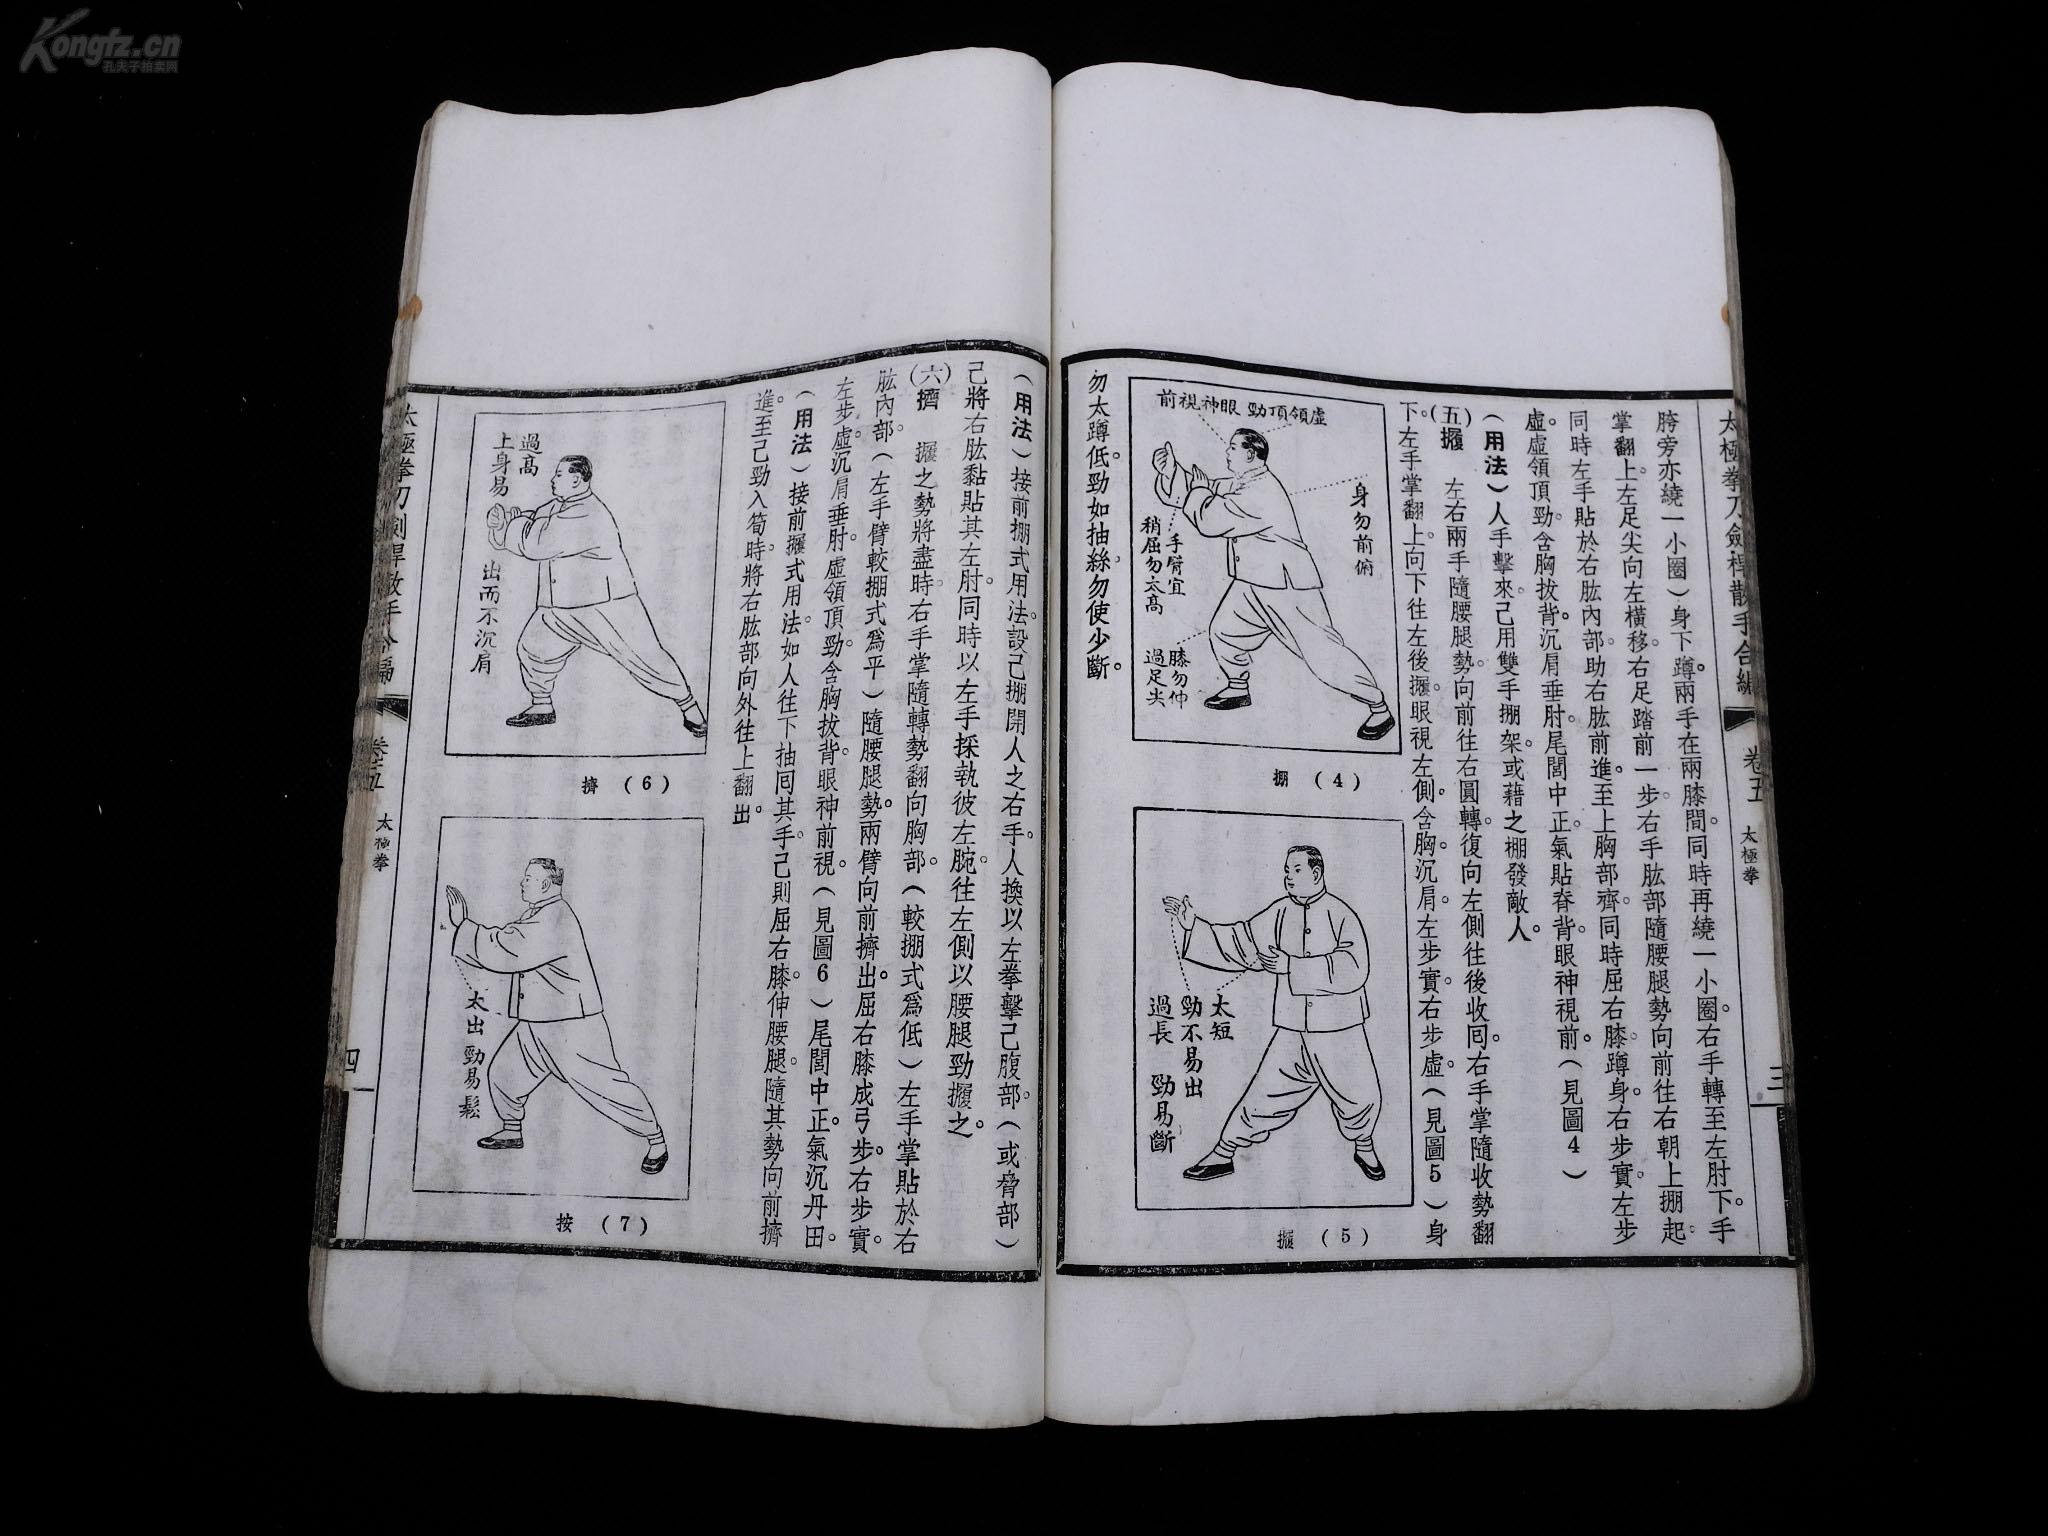 Kongfz.cn
孔夫子拍卖网
太極拳刀劍桿散手合編
卷五
太極拳
三
胯旁亦繞一小圈）身下蹲。兩手在兩膝間。同時再繞一小圈。右手轉至左肘下。手
掌翻上。左足尖向左橫移。右足踏前一步。右手肱部隨腰腿勢向前往右朝上掤起。
同時左手貼於右肱內部。助右肱前進。至上胸部齊。同時屈右膝。蹲身。右步實。左步
虛。虛領頂勁。含胸拔背。沉肩垂肘。尾閭中正。氣貼脊背。眼神視前。（見圖4）
（用法）人手擊來。己用雙手掤架。或藉之掤發敵人。
（五）攦　左右兩手隨腰腿勢。向前往右圓轉。復向左側往後收囘。右手掌隨收勢翻
下。左手掌翻上。向下往左後攦。眼視左側。含胸沉肩。左步實。右步虛。（見圖5）身
前視神眼
勁頂領虛
身勿前俯
手臂宜
稍屈勿太高
膝勿伸
過足尖
掤（4）
太短
勁不易出
過長
勁易斷
攦（5）
勿太蹲低。勁如抽絲。勿使少斷。
（用法）接前掤式用法。設己掤開人之右手。人換以左拳擊己腹部。（或脅部）
己將右肱黏貼其左肘。同時以左手採執彼左腕。往左側以腰腿勁攦之。
（六）擠　攦之勢將盡時。右手掌隨轉勢翻向胸部。（較掤式爲低）左手掌貼於右
肱內部。（左手臂較掤式爲平）隨腰腿勢。兩臂向前擠出。屈右膝成弓步。右步實。
左步虛。沉肩垂肘。虛領頂勁。含胸拔背。眼神前視。（見圖6）尾閭中正。氣沉丹田。
（用法）接前攦式用法。如人往下抽囘其手。己則屈右膝。伸腰腿。隨其勢向前擠
進。至己勁入筍時。將右肱部向外往上翻出。
過高
上身易
出而不沉肩
擠（6）
太出
勁易鬆
按（7）
太極拳刀劍桿散手合編
卷五
太極拳
四